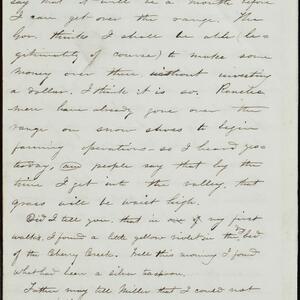 say that it will be a month before
I can get over the range. The
Gov. thinks I shall be able (le-
gitimately of course) to make some
money over there without investing
a dollar. I think it is so. Ranche-
men have already gone over the
range on snow shoes to begin
farming operations – so I heard yes-
today, and people say that by the
time I get into the valley, that
grass will be waist high.
Did I tell you, that in one of my first
walks, I found a little yellow violet in the bed
of the Cherry Creek. Well this morning I found
what had been a silver teaspoon.
Father may tell Miller that I could not